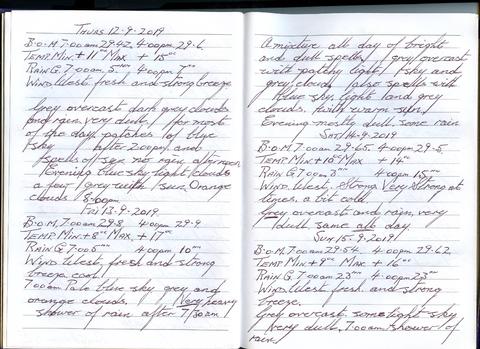 Thurs 12-9-2019
B.O.M 7.00am 29.42. 4.00pm 29.6
Temp. Min. + 11° Max + 15°
Rain G. 7.00am 5mm 4.00pm 7mm
Wind West fresh and strong breeze
Grey overcast dark grey clouds
and rain, very dull, for most
of the day, patches of blue
sky after 2.00pm. and
spells of sun no rain afternoon
Evening blue sky light clouds
a few / grey with / sun, Orange
clouds 8.00pm
Fri 13-9-2019
B.O.M. 7.00am 29.8 4.00pm 29.9
Temp. Min. + 8° Max + 17°
Rain G. 7.00 5mm 4.00pm 10mm
Wind West, fresh and strong
breeze cool.
7.00am Pale blue sky grey and
orange clouds. Very heavy
shower of rain after 7/30am
A mixture all day of bright
and dull spells, grey overcast
with patchy light / sky and
grey clouds also spells with
blue sky, light and grey
clouds, with warm sun.
Evening mostly dull some rain
Sat 14-9-2019
B.O.M. 7.00am 29.65. 4.00pm 29.5
Temp Min + 10° Max + 14°
Rain G. 7.00am 8mm 4.00pm 15mm
Wind West. Strong Very Strong at
times, a bit cold.
Grey overcast and rain, very
dull same all day.
Sun 15-9-2019
B.O.M. 7.00am 29.54. 4.00pm 29.62
Temp Min + 9° Max + 16°
Rain G. 7.00am 23mm 4.00pm 23mm
Wind West fresh and strong
breeze.
Grey overcast some light sky
very dull, 7.00am shower of
rain